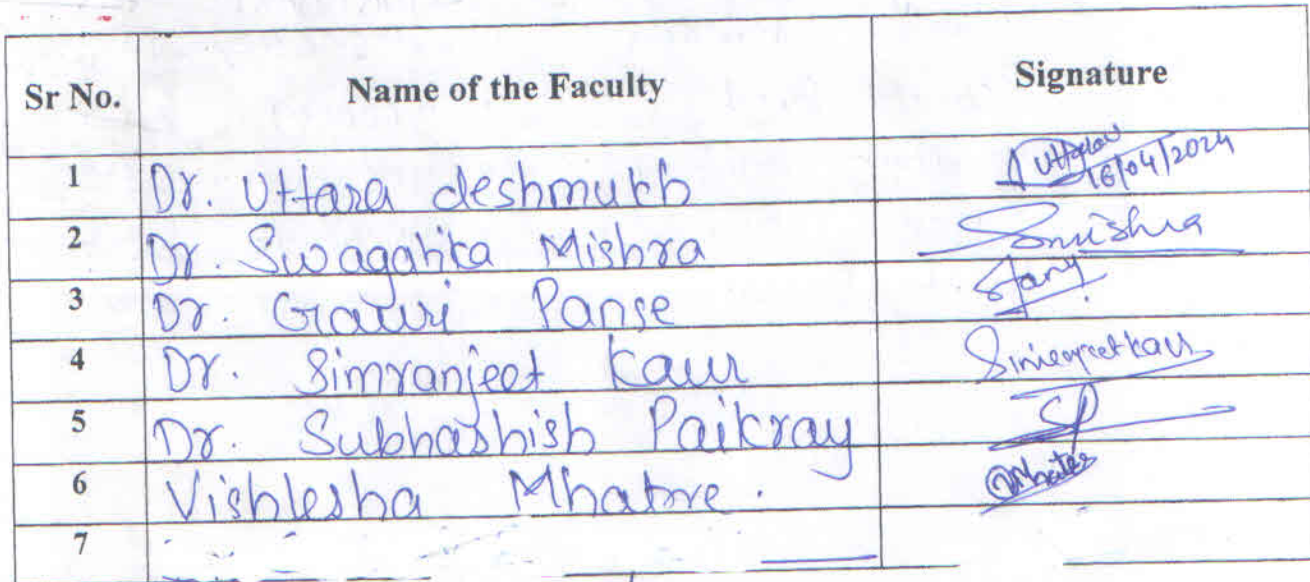 Sr No. Name of the Faculty Signature
1 Dr. Uttara deshmukh 16/04/2024
2 Dr. Swagatika Mishra Smishra
3 Dr. Gauri Panse
4 Dr. Simranjeet Kaur Simranjeetkaur
5 Dr. Subhashish Paikray SP
6 Vishlesha Mhatre.
7